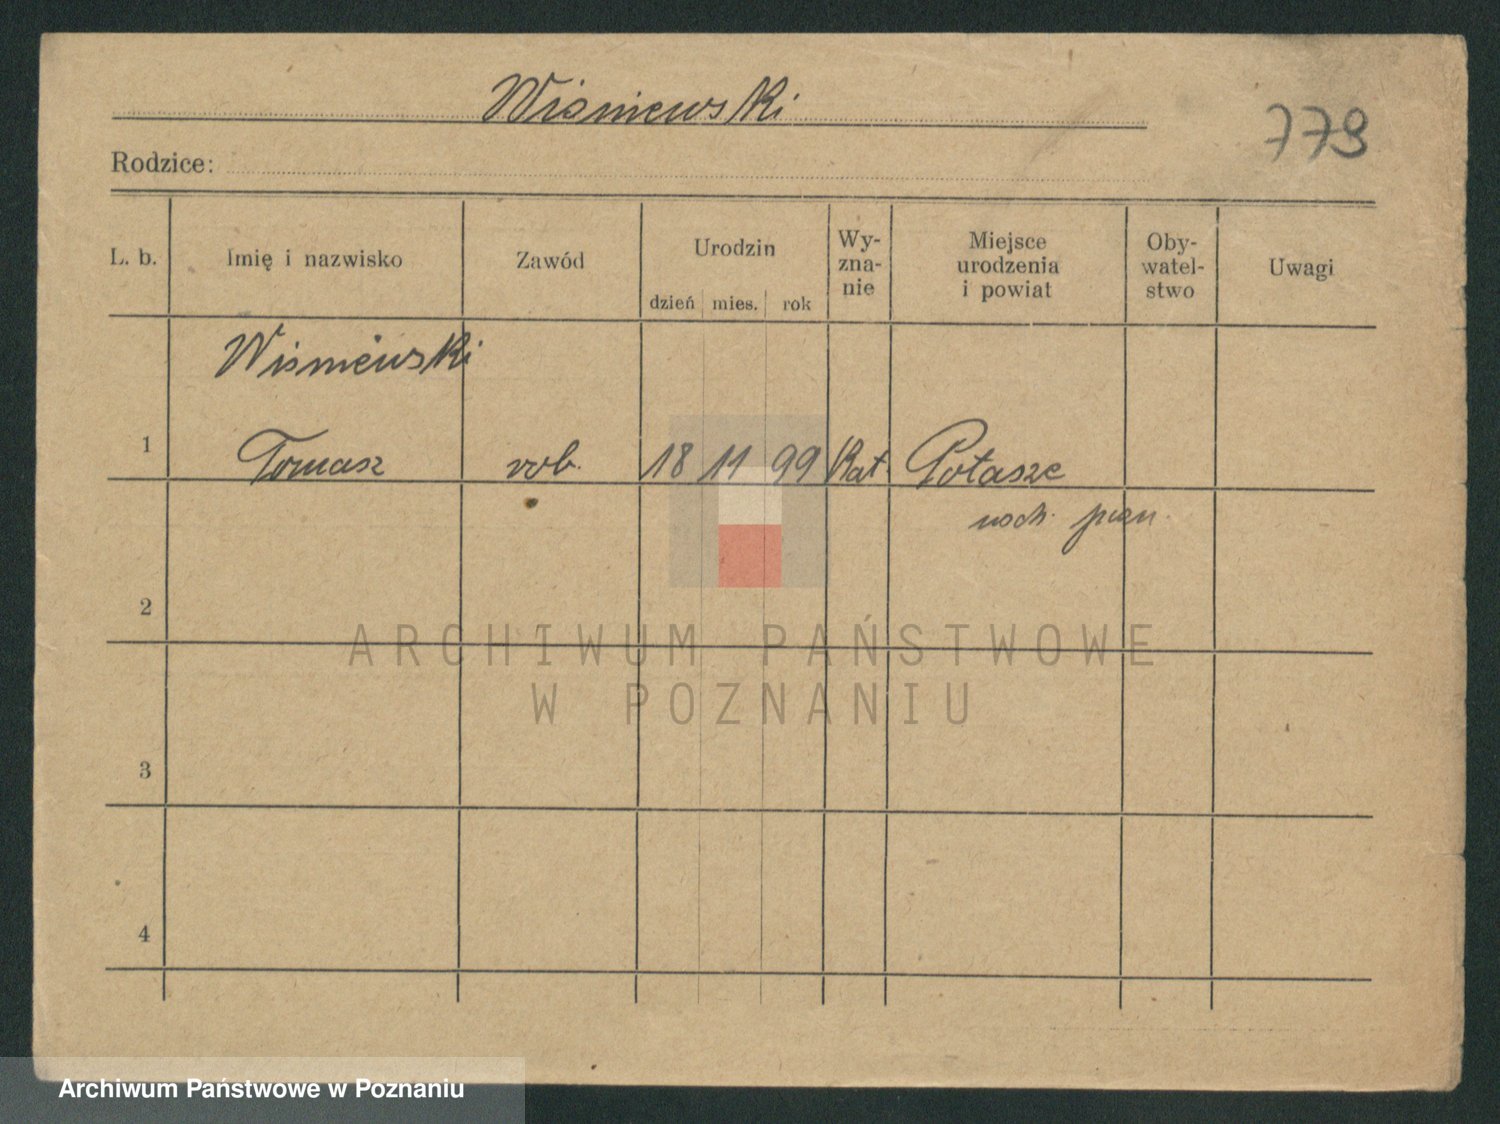 Wisniewski
779
Rodzice:
L. b. Imię i nazwisko Zawód Urodzin dzień mies. rok Wy-zna-nie Miejsce urodzenia i powiat Oby-watel-stwo Uwagi
Wisniewski
1 Tomasz rob. 18 11 99 Kat. Potasze
2
3
4
ARCHIWUM PAŃSTWOWE
W POZNANIU
Archiwum Państwowe w Poznaniu